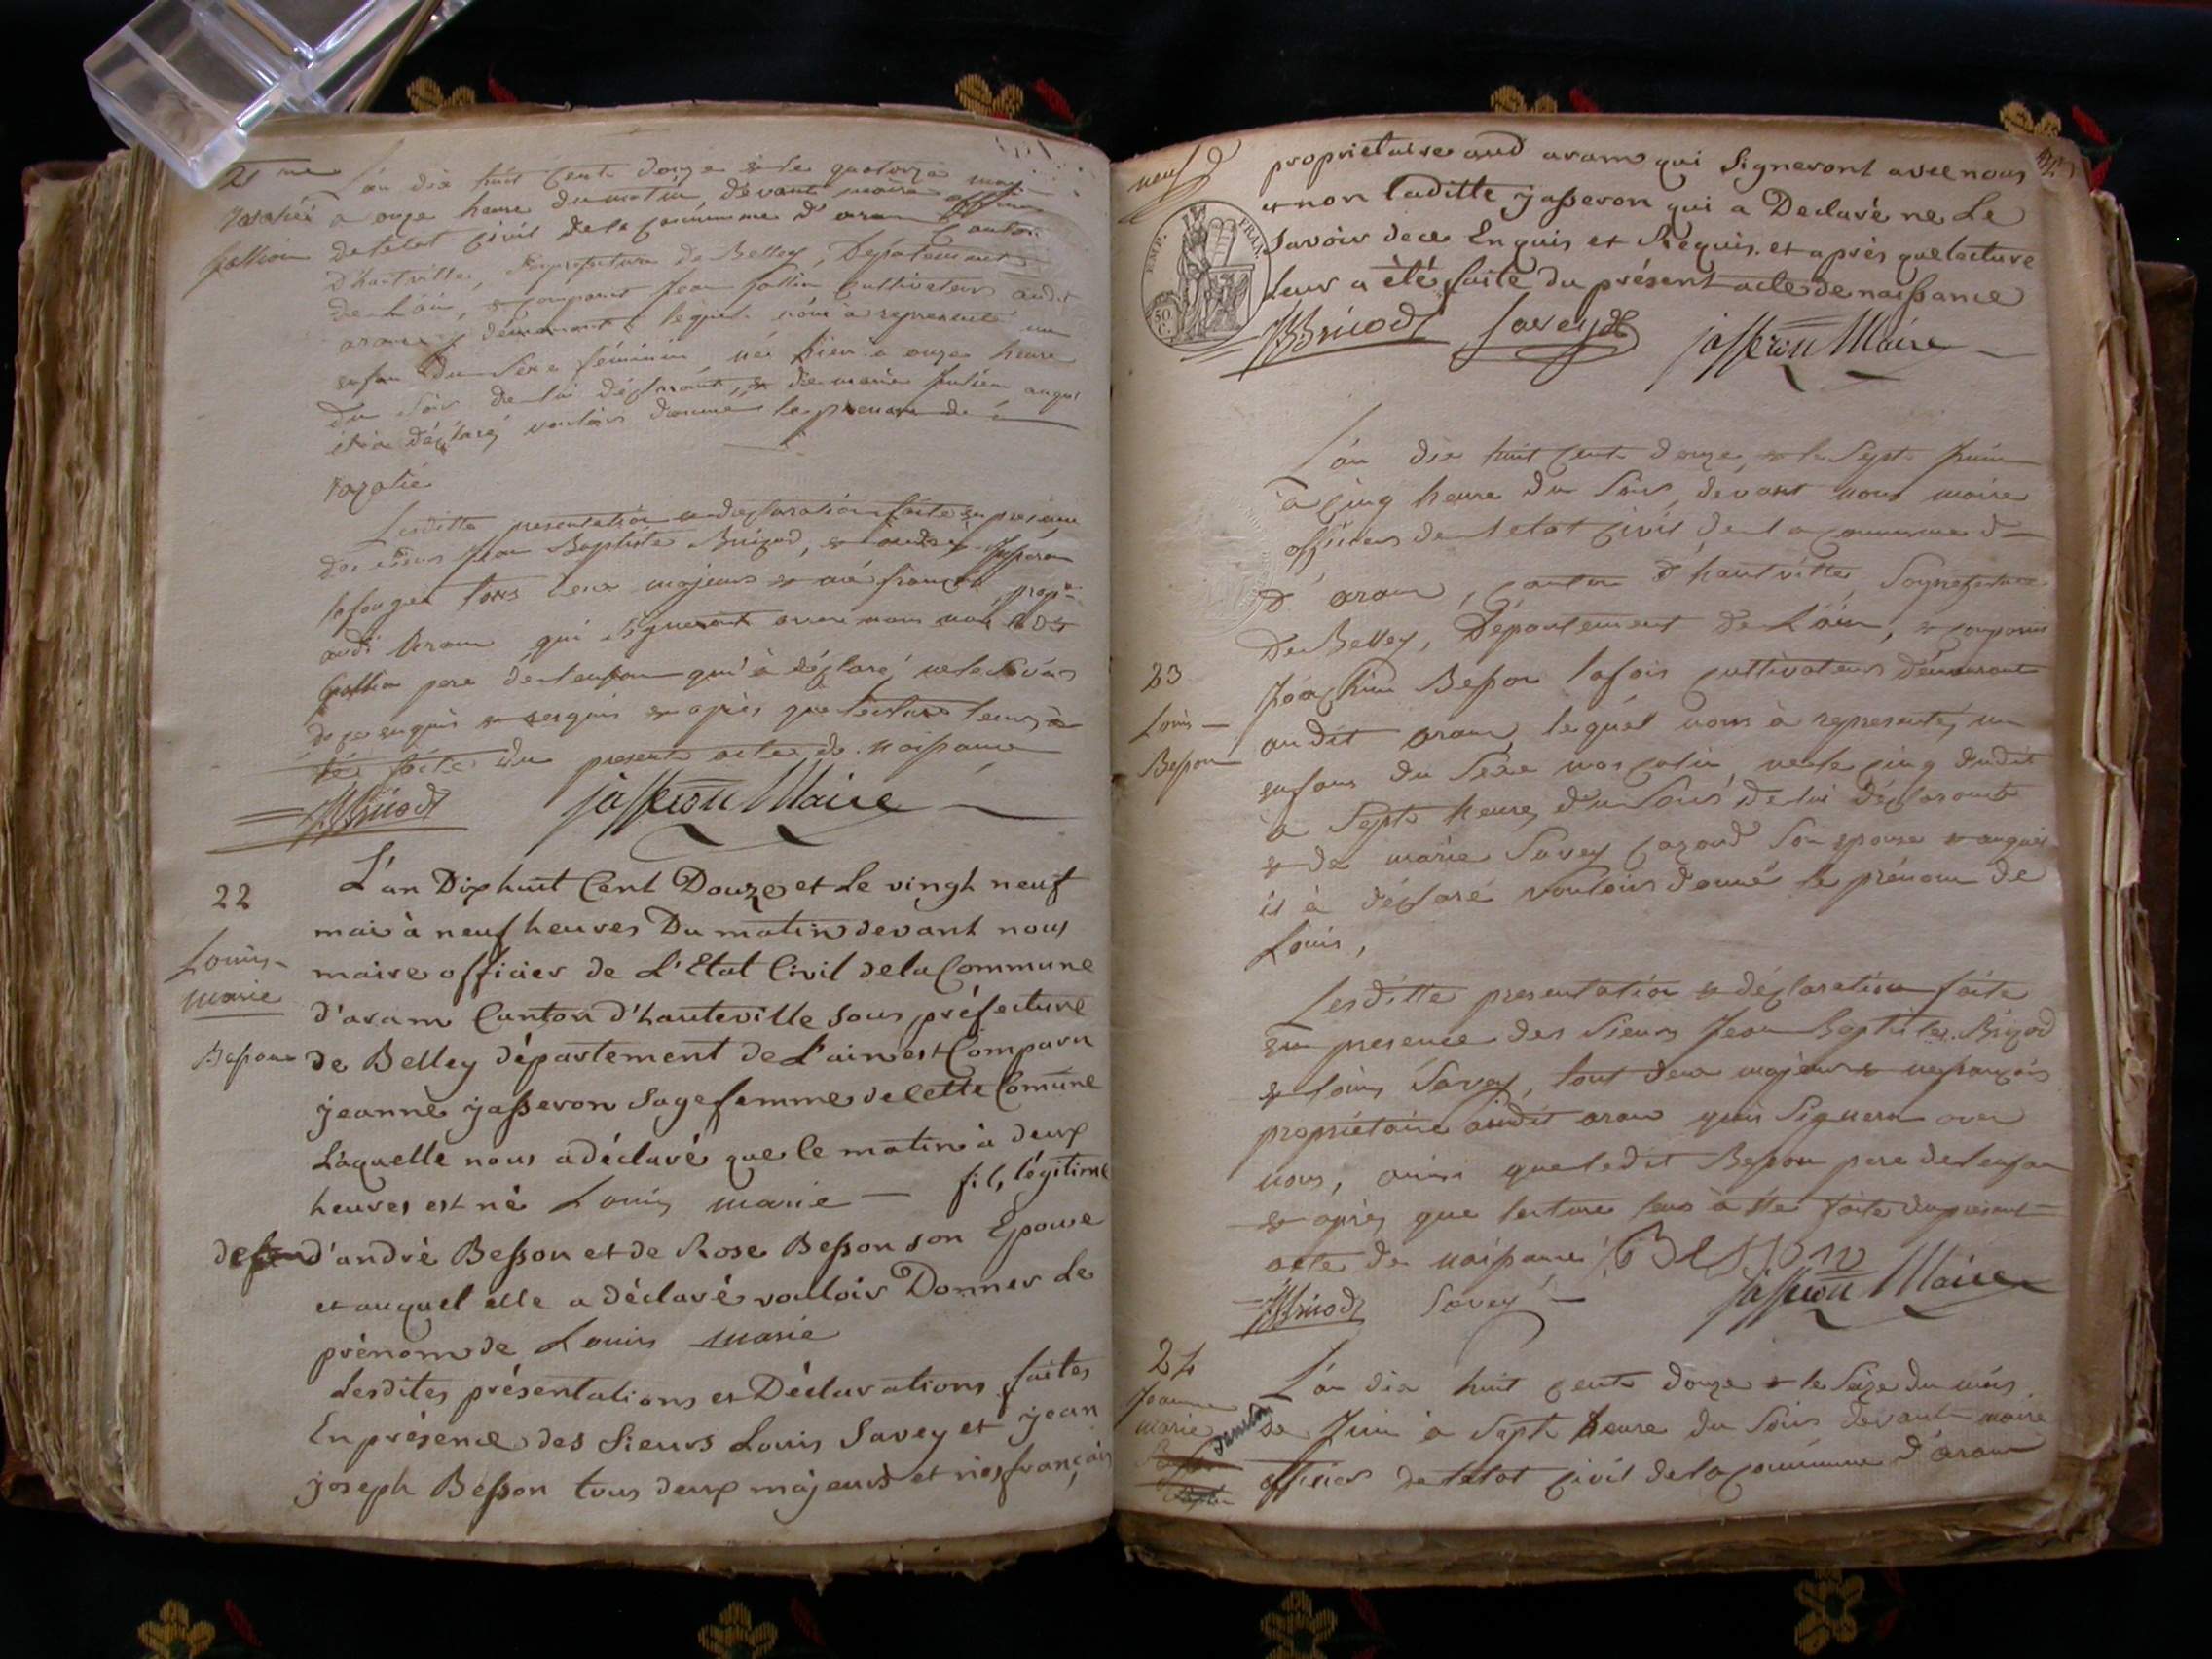 21 me
L'an dix huit Cent douze & le quatorze may
a onze heure du matin devant maire officier
Rosalie
Gallion
de l'etat Civil de la Commune d'aram Canton
D'hauteville, Souprefecture de Belley, Departement
de L'ain, & comparut Jean Gallion Cultivateur audit
aram y demeurant lequel nous à representé un
enfan du Sexe féminin né hier à onze heure
Du Soir de lui déclarant, & de marie auquel
il à déclaré vouloir donner le prenom de
rozalie
Lesditte presentation & declaration faite en presence
des sieurs Jean Baptiste Brigod, & Jasseron
tous deux majeurs & né français prop.re
audit Aram qui Signeront avec nous non led.t
Gallion pere de lenfan qui à déclaré ne le Savoir
de ce enquis & requis & après que lecture leurs à
été faite du present acte de naissance
JBBrigod jasseron Maire
22
Louis
marie
Besson
L'an Dix huit Cent Douze et Le vingt neuf
mai à neuf heures Du matin devant nous
maire officier de L'Etat Civil de la Commune
d'aram Canton d'hauteville Sous préfecture
de Belley département de L'ain est Comparu
jeanne jasseron Sage femme de Cette Comune
Laquelle nous a déclaré que le matin à deux
heures est né Louis marie — fils légitime
d'andré Besson et de Rose Besson son Epouse
et auquel elle a déclaré vouloir Donner Le
prénom de Louis marie
Lesdites présentations et Déclarations faites
En présence des Sieurs Louis Savey et jean
joseph Besson tous deux majeurs et nés français
neuf
EMP. FRAN.
50 C.
propriétaire aud aram qui Signeront avec nous
et non laditte jasseron qui a Declaré ne Le
Savoir de ce Enquis et Requis. et après que lecture
Leur a été faite du présent acte de naissance
JBBrigod Savey jasseron Maire
L'an dix huit Cent douze, & le Sept Juin
à Cinq heure du Soir, devant nous maire
officier de l'etat Civil de la Commune d
d'aram, Canton d'hauteville, Souprefecture
De Belley, Département de L'ain, & comparu
23
Louis
Besson
Joachim Besson lafois Cultivateur demeurant
audit aram, lequel nous à representé, un
enfans du Sexe masculin, né le Cinq dudit
a Sept heures du Soir de lui déclarant
& de marie Savey Cazard Son epouse & auquel
il à déclaré vouloir donné le prénom de
Louis,
Lesditte presentation & déclaration faite
En presence des Sieurs Jean Baptistes Brigod
& Louis Savey, tout deux majeurs & né français
propriétaire audit aram qui Signeron avec
nous, ainsi que ledit Besson pere de lenfan
& après que lecture leur à été faite du present
acte de naissance Besson
JBBrigod Savey jasseron Maire
24
Jeanne
marie
L'an dix huit Cent douze & le Seize du mois
de Juin à Sept heure du Soir devant maire
officier de l'etat Civil de la Commune d'aram